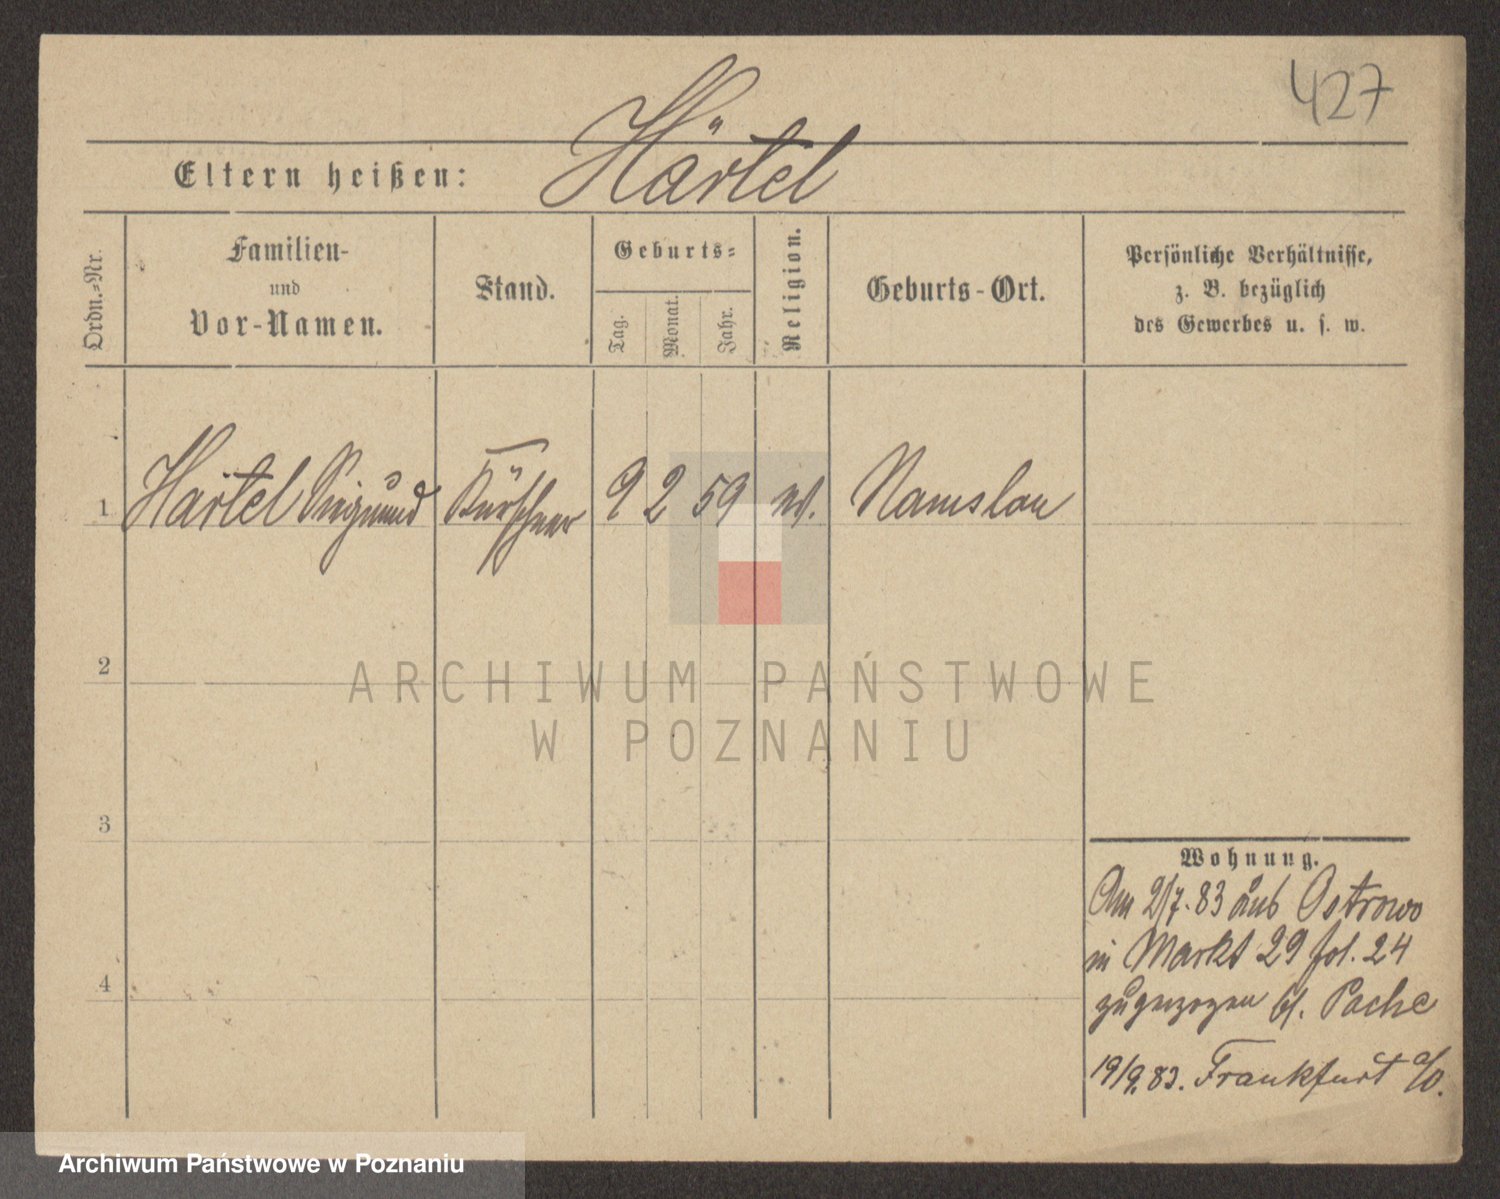 427
Härtel
Eltern heißen:
Ordn.-Nr.
Familien-
und
Vor-Namen.
Stand.
Geburts-
Tag.
Monat.
Jahr.
Religion.
Geburts-Ort.
Persönliche Verhältnisse,
z. B. bezüglich
des Gewerbes u. s. w.
1 Härtel Sigmund Kürschner 9 2 59 Namslau
2
3
4
Wohnung.
Am 2/7.83 aus Ostrowo
in Markt 29 fol. 24
zugezogen bei Pache
19/9.83. Frankfurt a/O.
ARCHIWUM PAŃSTWOWE
W POZNANIU
Archiwum Państwowe w Poznaniu